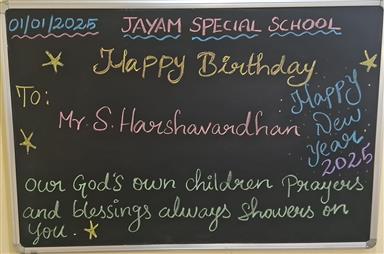 01/01/2025 JAYAM SPECIAL SCHOOL
Happy Birthday
To:
Mr. S. Harshavardhan
Happy
New
Year
2025
our God's own children Prayers
and blessings always Showers on
You.